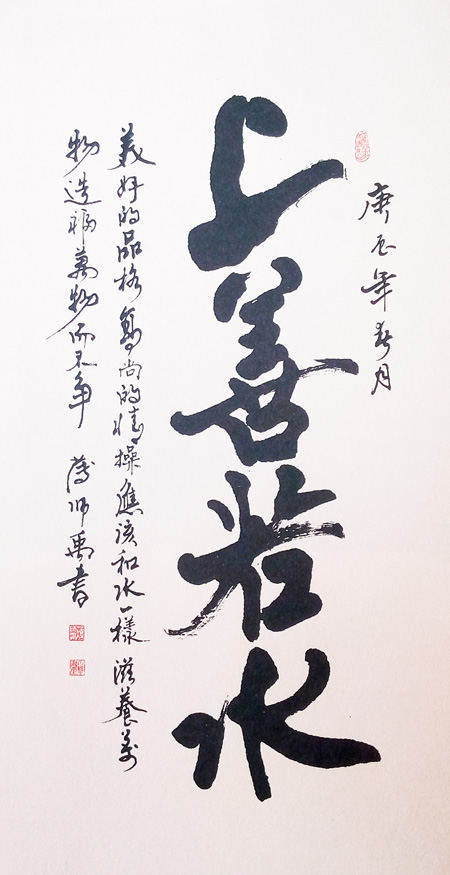 庚辰年春月
上善若水
美好的品格高尚的情操應该和水一樣滋養万
物造福萬物而不争 薄师禹書